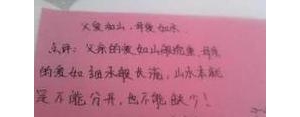 父爱如山，母爱如水
点评：父亲的爱如山般稳重，母亲
的爱如細水般长流，山水本就
是不能分开，也不能缺少！